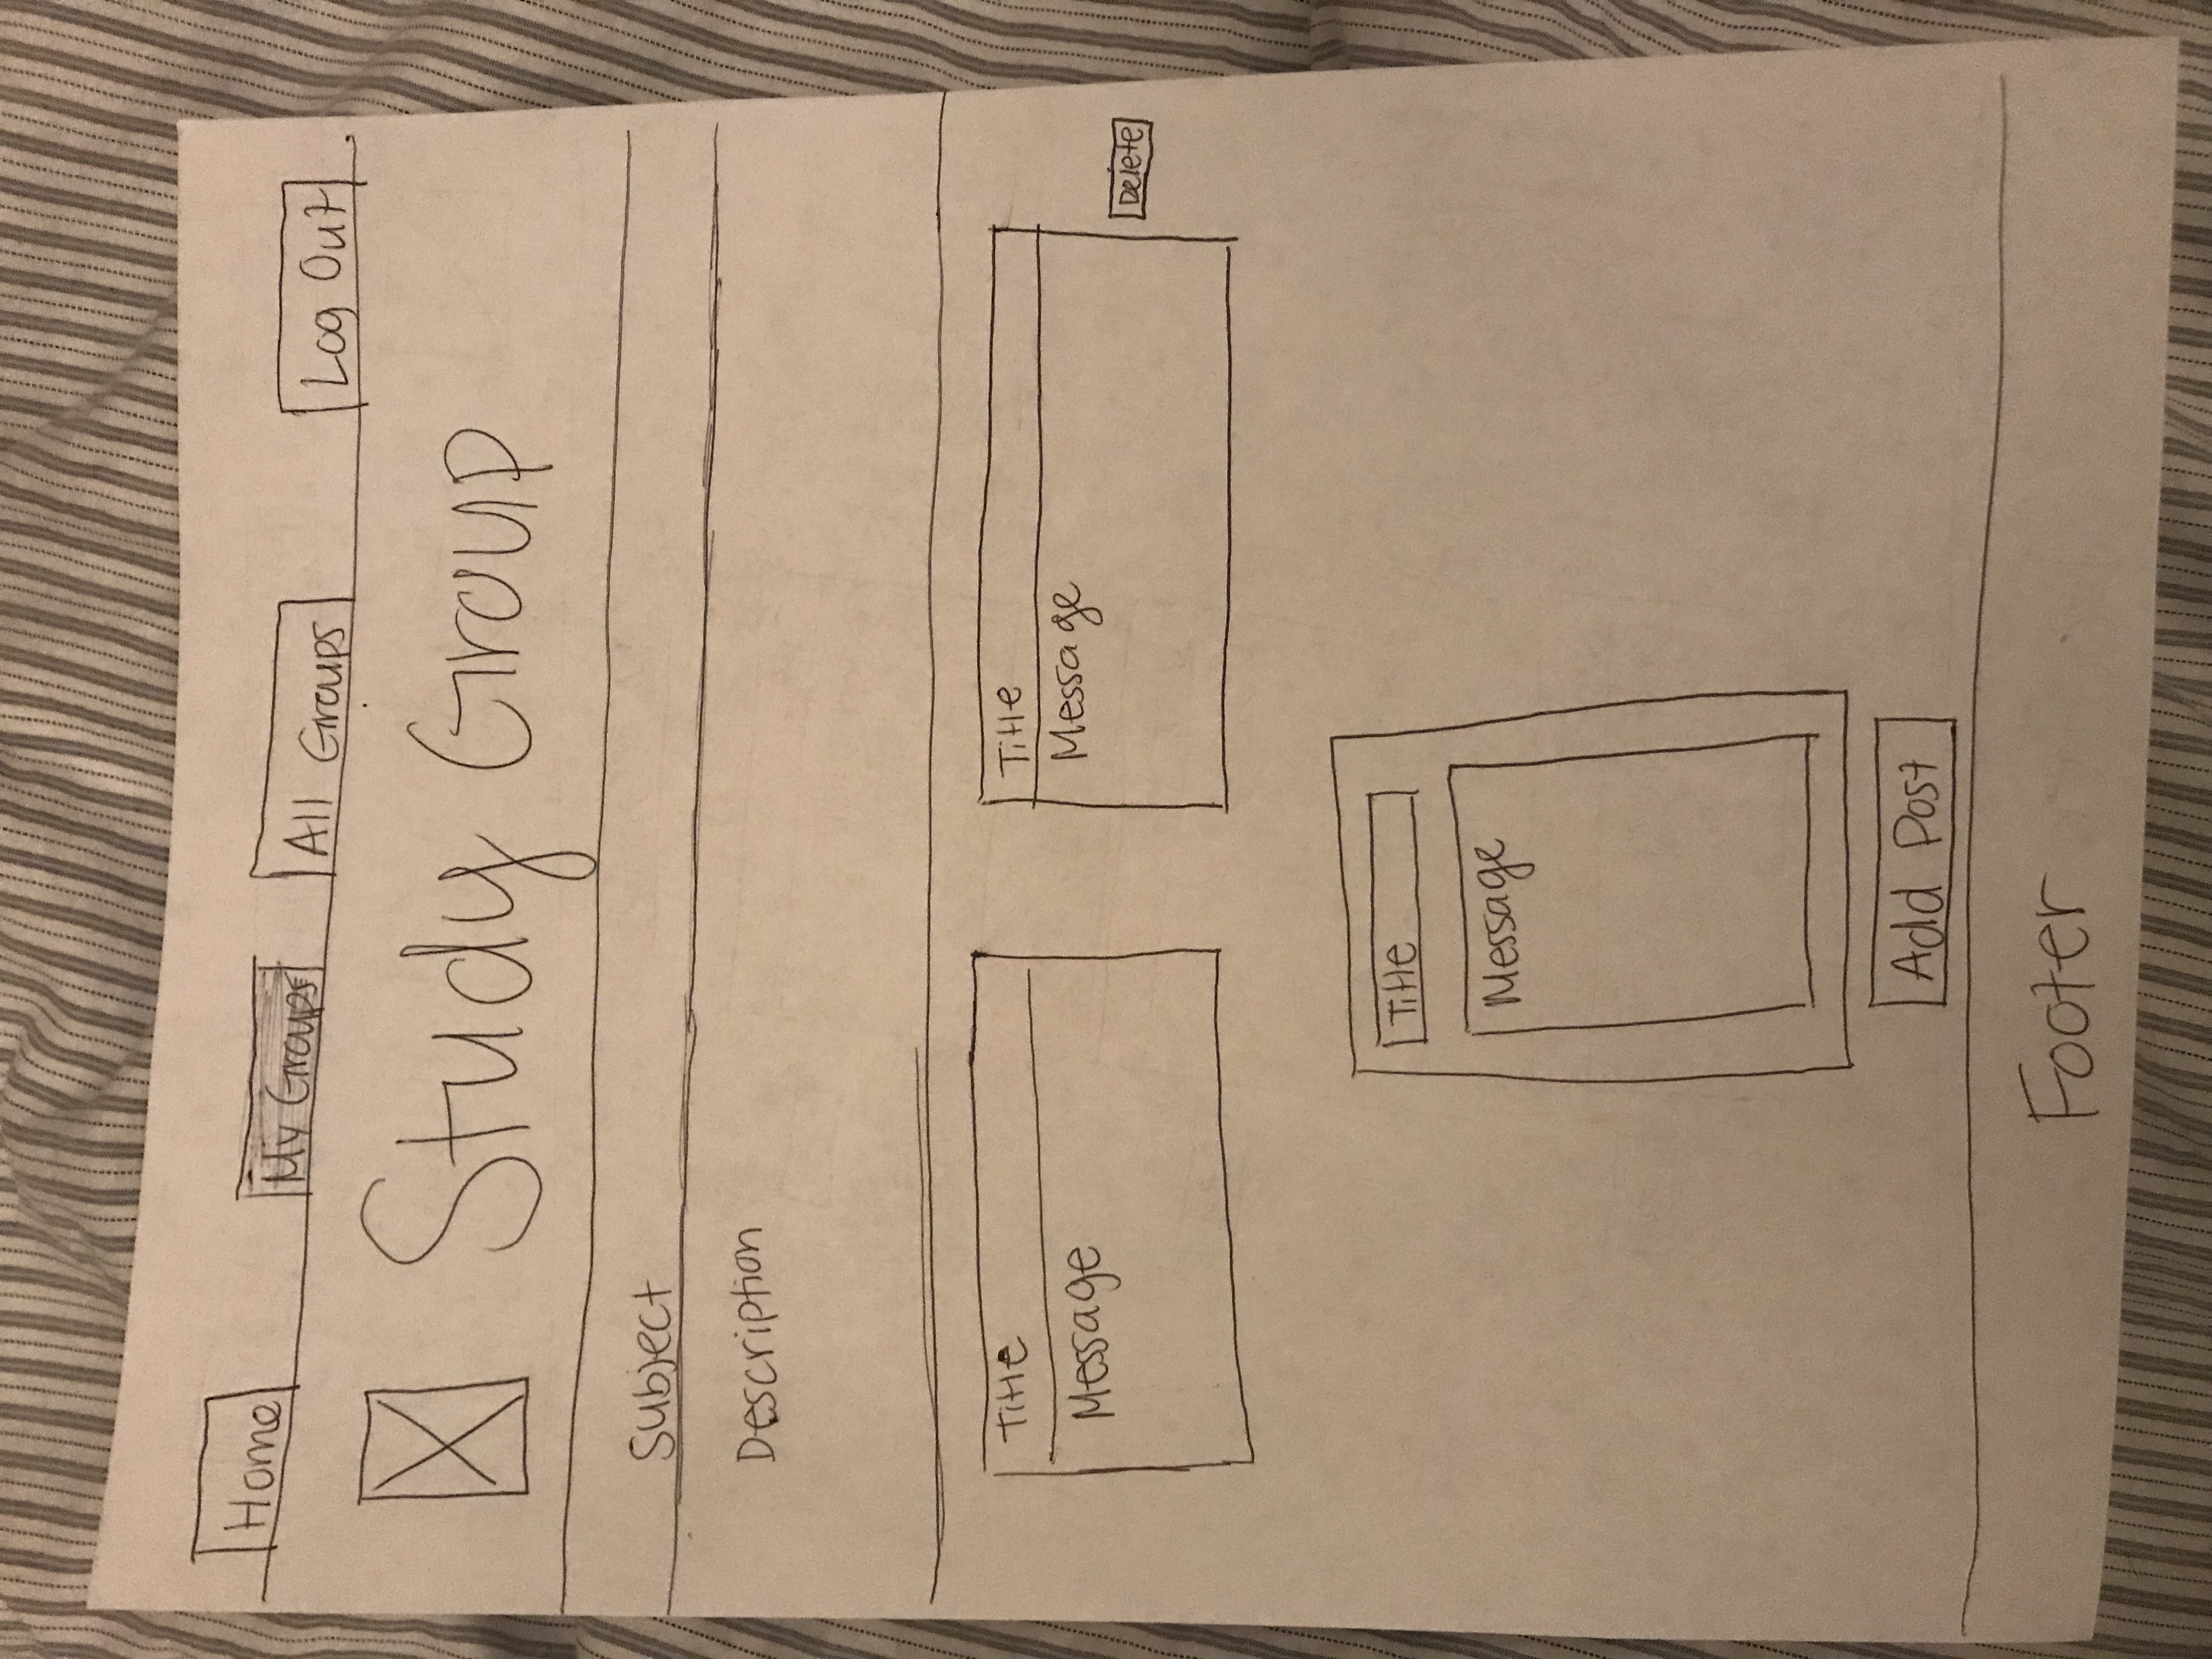 Home My Groups All Groups Log Out
Study Group
Subject
Description
Title Title
Message Message
Delete
Title
Message
Add Post
Footer